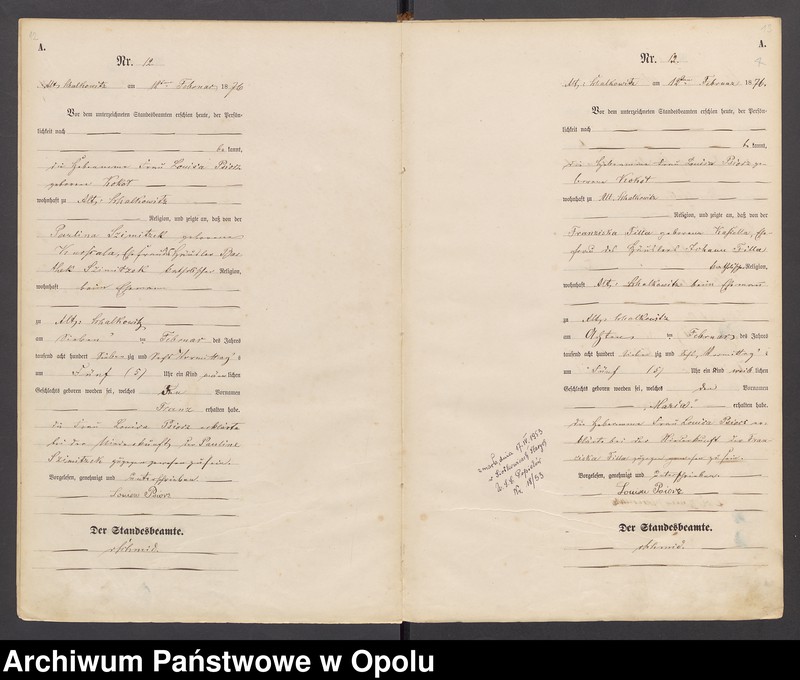 A.
Nr. 12
Alt-Schalkowitz am 12ten Februar 1876
Vor dem unterzeichneten Standesbeamten erschien heute, der Persön-
lichkeit nach
be kannt,
die Hebamme Frau Louisa Piorz
geborene Kokot
wohnhaft zu Alt-Schalkowitz
Religion, und zeigte an, daß von der
Paulina Szimitzek geborene
Ehefrau des Häusler
Szimitzek katholischer Religion,
wohnhaft beim Ehemann
zu Alt-Schalkowitz
am Sieben Februar des Jahres
tausend acht hundert siebenzig und sechs Vormittag s
um Fünf (5) Uhr ein Kind männlichen
Geschlechts geboren worden sei, welches den Vornamen
Franz erhalten habe.
die Frau Louisa Piorz erklärte
bei der Niederkunft der Pauline
Szimitzek zugegen gewesen zu sein.
Vorgelesen, genehmigt und unterschrieben
Louisa Piorz
Der Standesbeamte.
Schmid.
A.
Nr. 12.
Alt-Schalkowitz am 12ten Februar 1876.
Vor dem unterzeichneten Standesbeamten erschien heute, der Persön-
lichkeit nach
be kannt,
die Hebamme Frau Louise Piorz ge-
borene Kokot
wohnhaft zu Alt Schalkowitz
Religion, und zeigte an, daß von der
Franziska Filla geborene Eh-
efrau des Häuslers Johann Filla
katholischer Religion,
wohnhaft Alt-Schalkowitz beim Ehemann
zu Alt-Schalkowitz
am Achten Februar des Jahres
tausend acht hundert siebenzig und sechs Vormittag s
um Fünf (5) Uhr ein Kind weiblichen
Geschlechts geboren worden sei, welches den Vornamen
"Maria" erhalten habe.
die Hebamme Frau Louise Piorz er-
klärte bei der Niederkunft der Fran-
ziska Filla zugegen gewesen zu sein.
Vorgelesen, genehmigt und unterschrieben
Louise Piorz
Der Standesbeamte.
Schmid.
dnia 17.IV.1953
Nr. 18/53
Archiwum Państwowe w Opolu